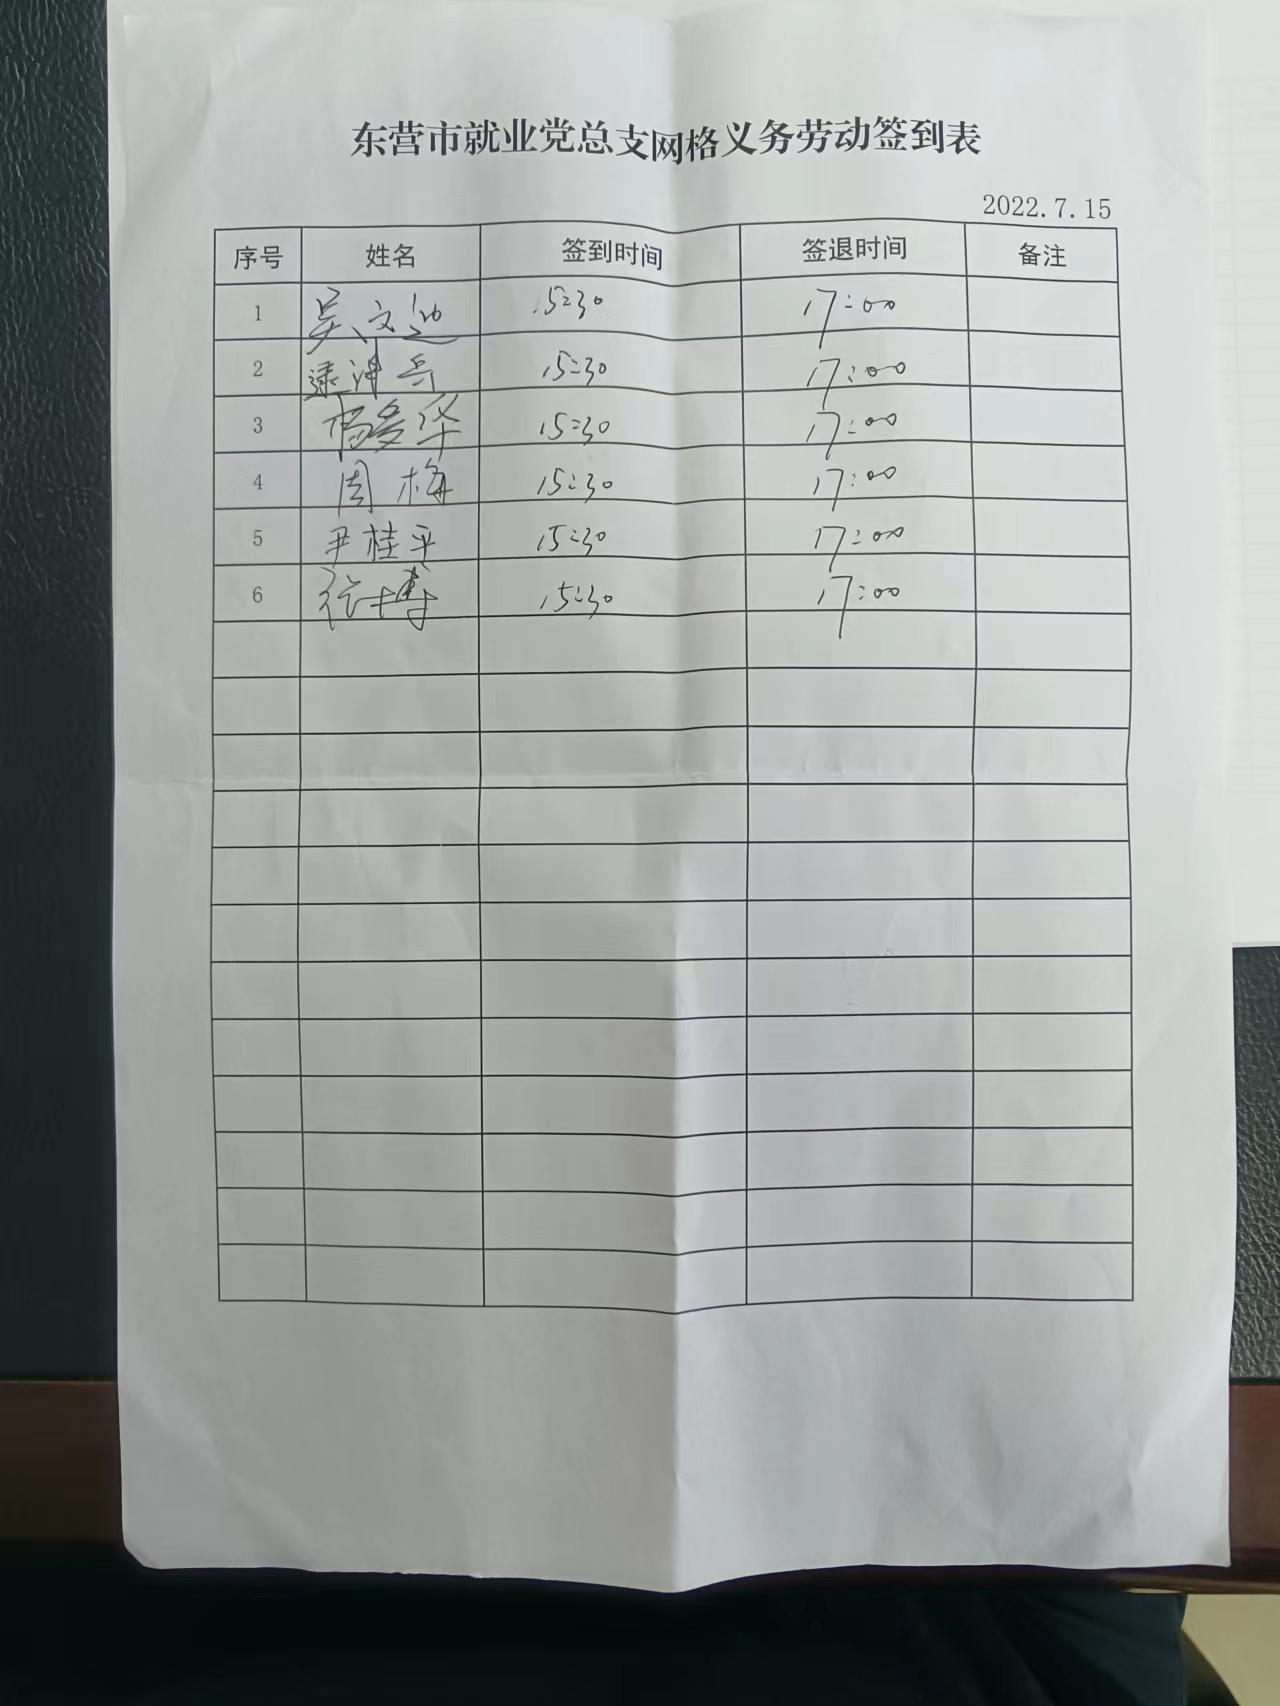 东营市就业党总支网格义务劳动签到表
2022.7.15
序号 姓名 签到时间 签退时间 备注
1 吴文 15:30 17:00
2 15:30 17:00
3 杨爱华 15:30 17:00
4 周梅 15:30 17:00
5 尹桂平 15:30 17:00
6 徐博 15:30 17:00